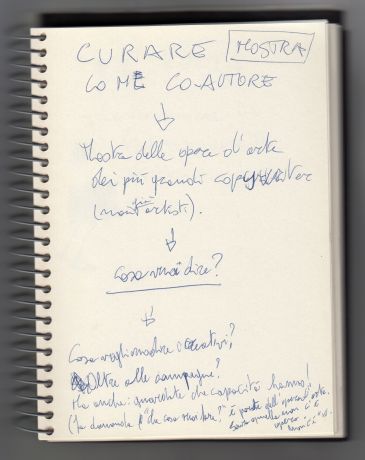 CURARE MOSTRA
COME CO-AUTORE
Mostra delle opere d'arte
dei più grandi copywriter
(non artisti).
Cosa vuoi dire?
Cosa vogliono dire i creativi?
Oltre alle campagne?
Ma anche: guardate che capacità hanno!
(La domanda "da cosa vuoi dire?" è parte dell'opera d'arte
senza quella non c'è
opera.